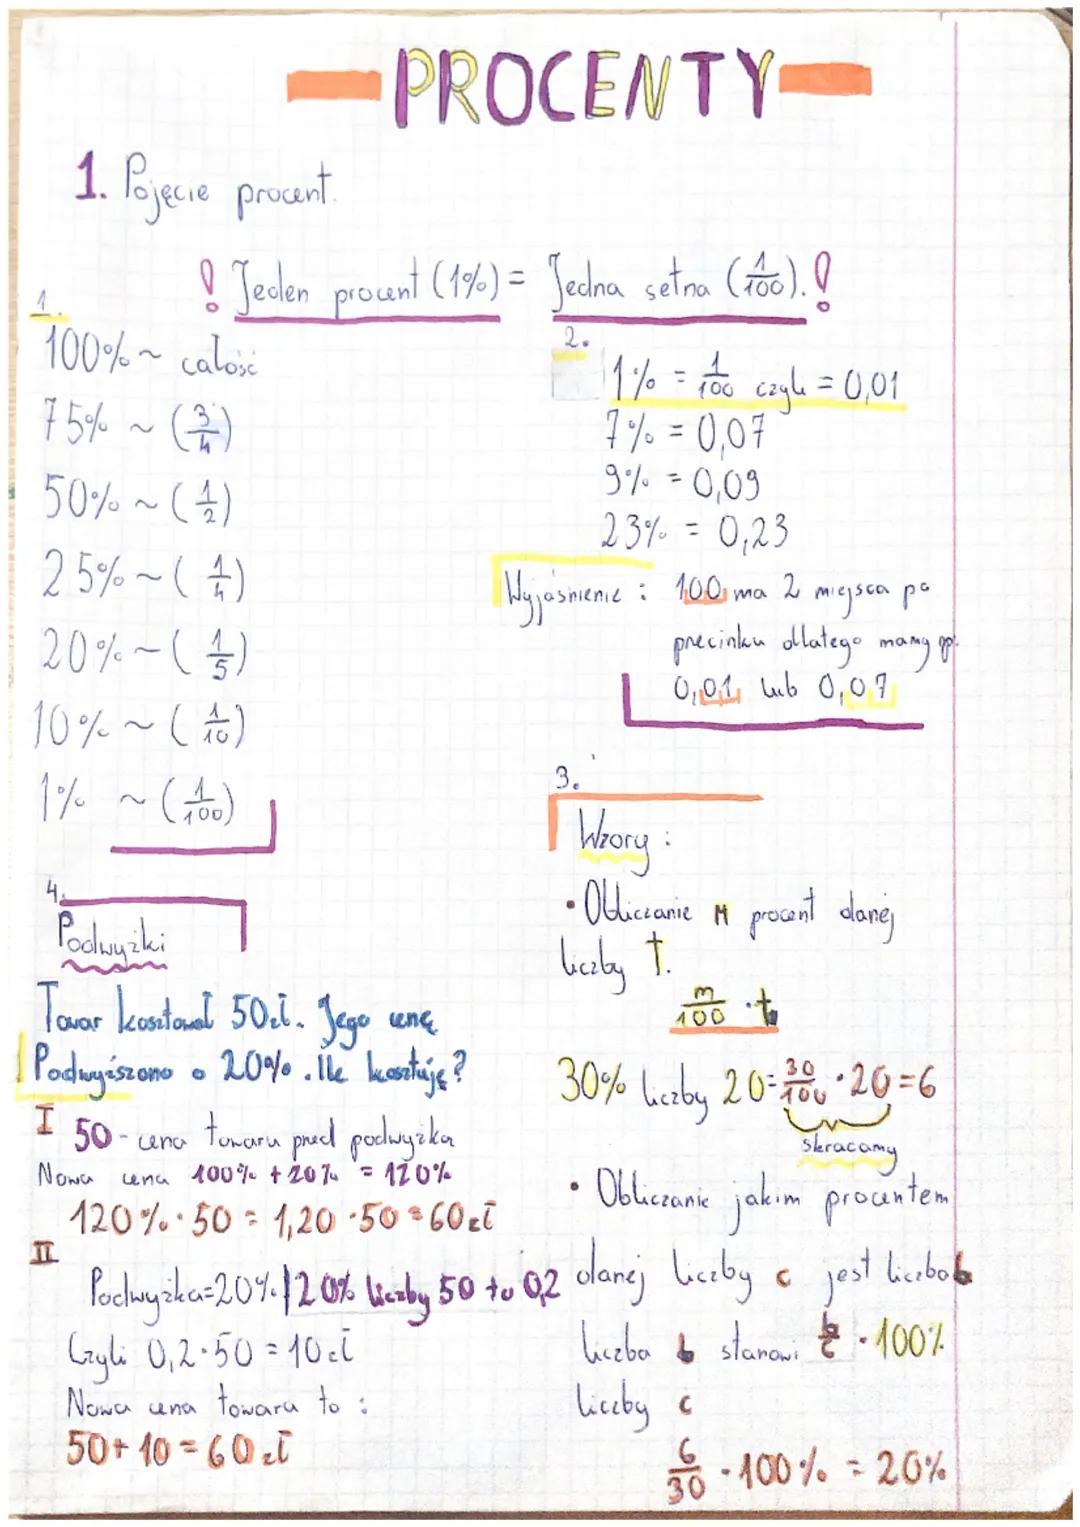 PROCENTY
1. Pojęcie procent.
! Jeden procent (1%) = Jedna setna (1/100). !
1.
100% ~ całość
75% ~ (3/4)
50% ~ (1/2)
25% ~ (1/4)
20% ~ (1/5)
10% ~ (1/10)
1% ~ (1/100)
2.
1% = 1/100 czyli = 0,01
7% = 0,07
9% = 0,09
23% = 0,23
Wyjaśnienie : 100 ma 2 miejsca po
przecinku dlatego mamy np.
0,01 lub 0,07
3.
Wzory :
• Obliczanie m procent danej
liczby t.
m/100 · t
30% liczby 20 = 30/100 · 20 = 6
skracamy
• Obliczanie jakim procentem
danej liczby c jest liczba b
liczba b stanowi b/c · 100%
liczby c
6/30 · 100% = 20%
4.
Podwyżki
Towar kosztował 50zł. Jego cenę
Podwyższono o 20%. Ile kosztuję?
I 50 - cena towaru pred podwyżka
Nowa cena 100% + 20% = 120%
120% · 50 = 1,20 · 50 = 60zł
II
Podwyżka=20% | 20% liczby 50 to 0,2
Czyli 0,2 · 50 = 10zł
Nowa cena towara to :
50 + 10 = 60zł